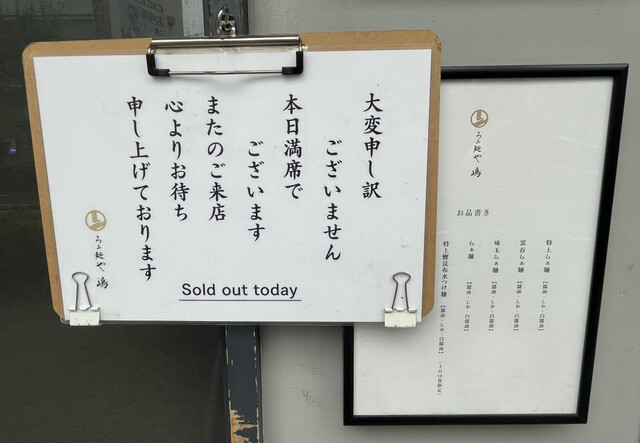 大変申し訳
ございません
本日満席で
ございます
またのご来店
心よりお待ち
申し上げております
らぁ麺や 嶋
Sold out today
らぁ麺や 嶋
お品書き
特上らぁ麺 【醤油・しお・白醤油】
雲呑らぁ麺 【醤油・しお・白醤油】
味玉らぁ麺 【醤油・しお・白醤油】
らぁ麺 【醤油・しお・白醤油】
特上鰹昆布水つけ麺 【醤油・しお・白醤油】